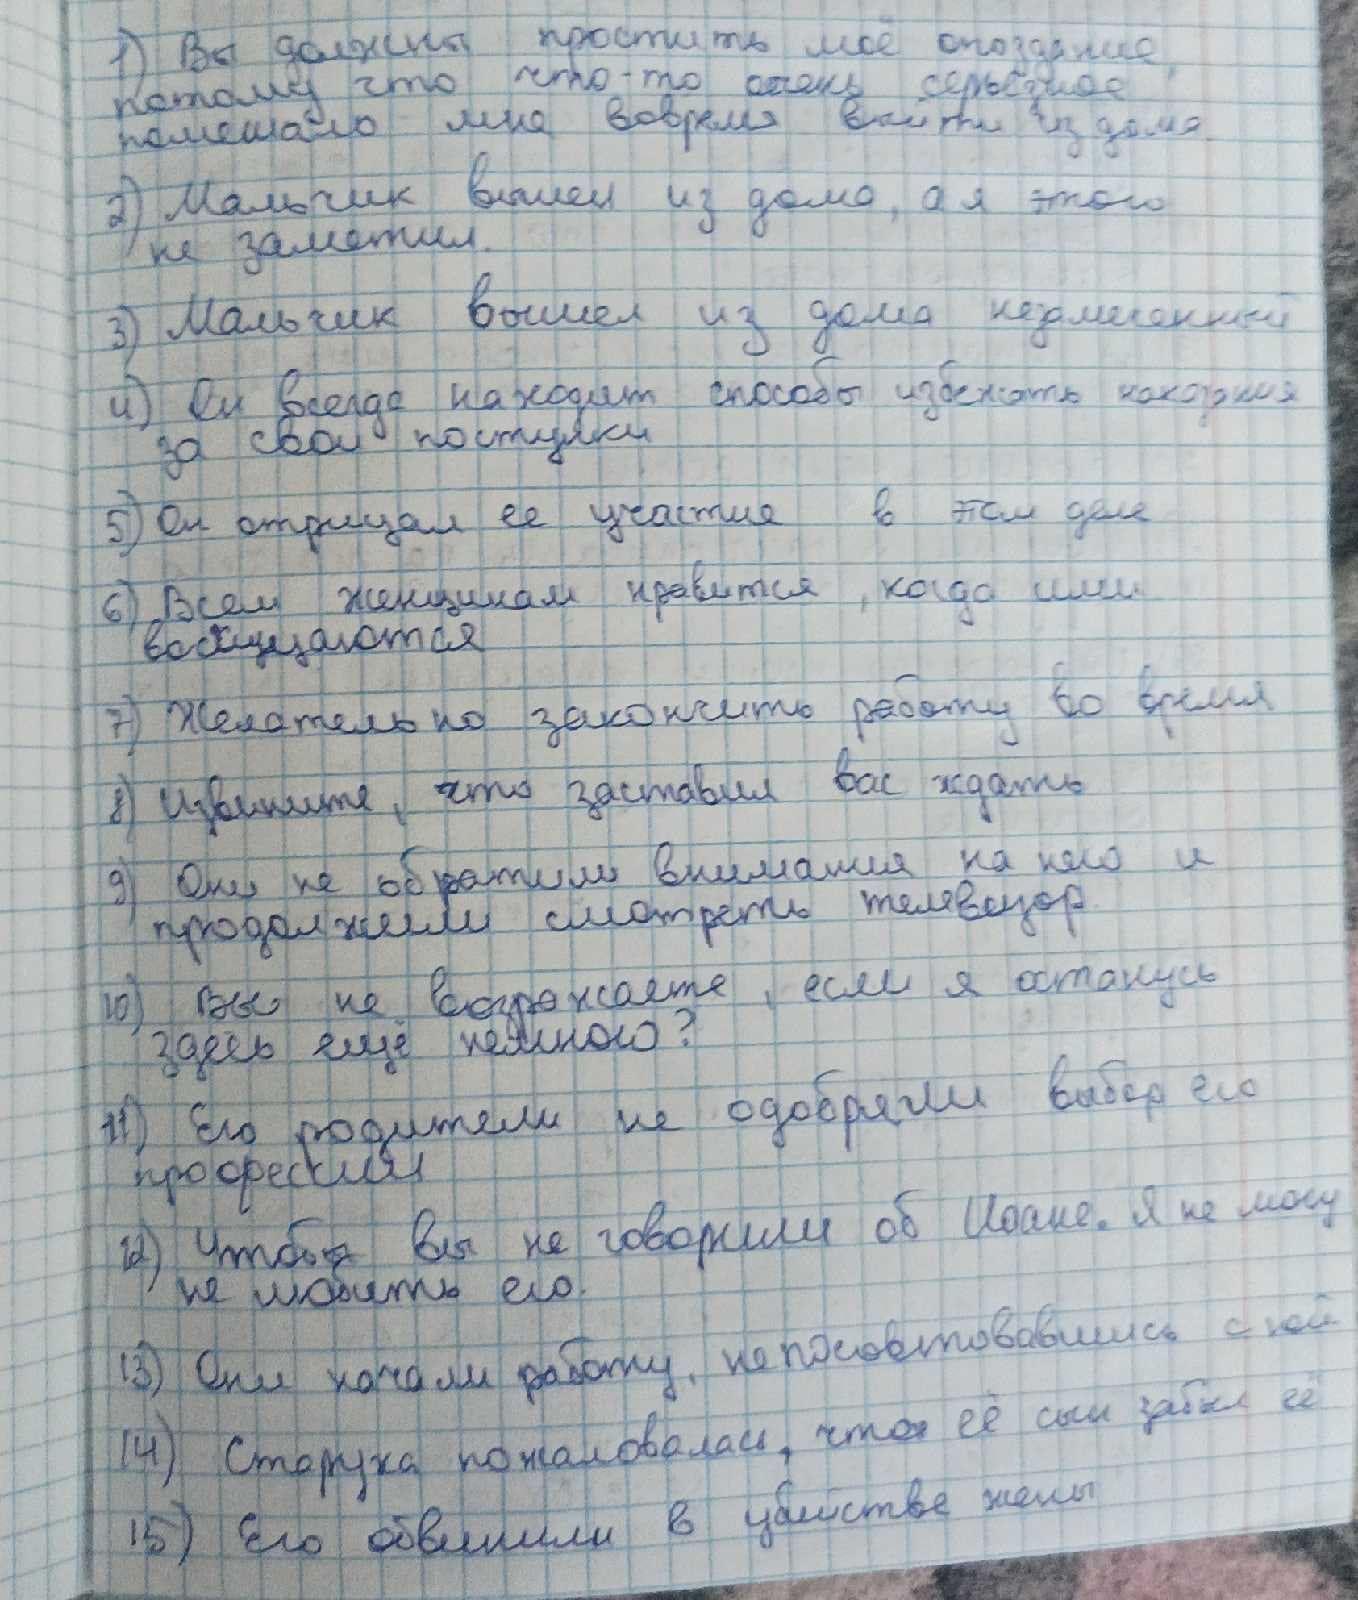 1) Вы должны простить моё опоздание,
потому что что-то очень серьёзное
помешало мне вовремя выйти из дома.
2) Мальчик вышел из дома, а я этого
не заметил.
3) Мальчик вышел из дома незамеченный
4) Он всегда находит способы избежать наказания
за свои поступки
5) Он отрицал ее участие в этом деле
6) Всем женщинам нравится, когда ими
восхищаются
7) Желательно закончить работу во время
8) Извините, что заставил вас ждать
9) Они не обратили внимания на него и
продолжили смотреть телевизор.
10) Вы не возражаете, если я останусь
здесь ещё немного?
11) Его родители не одобряли выбор его
профессии
12) Чтобы вы не говорили об Иоане. Я не могу
не любить его.
13) Они начали работу, не посоветовавшись с ней
14) Старуха пожаловалась, что её сын забыл её
15) Его обвинили в убийстве жены